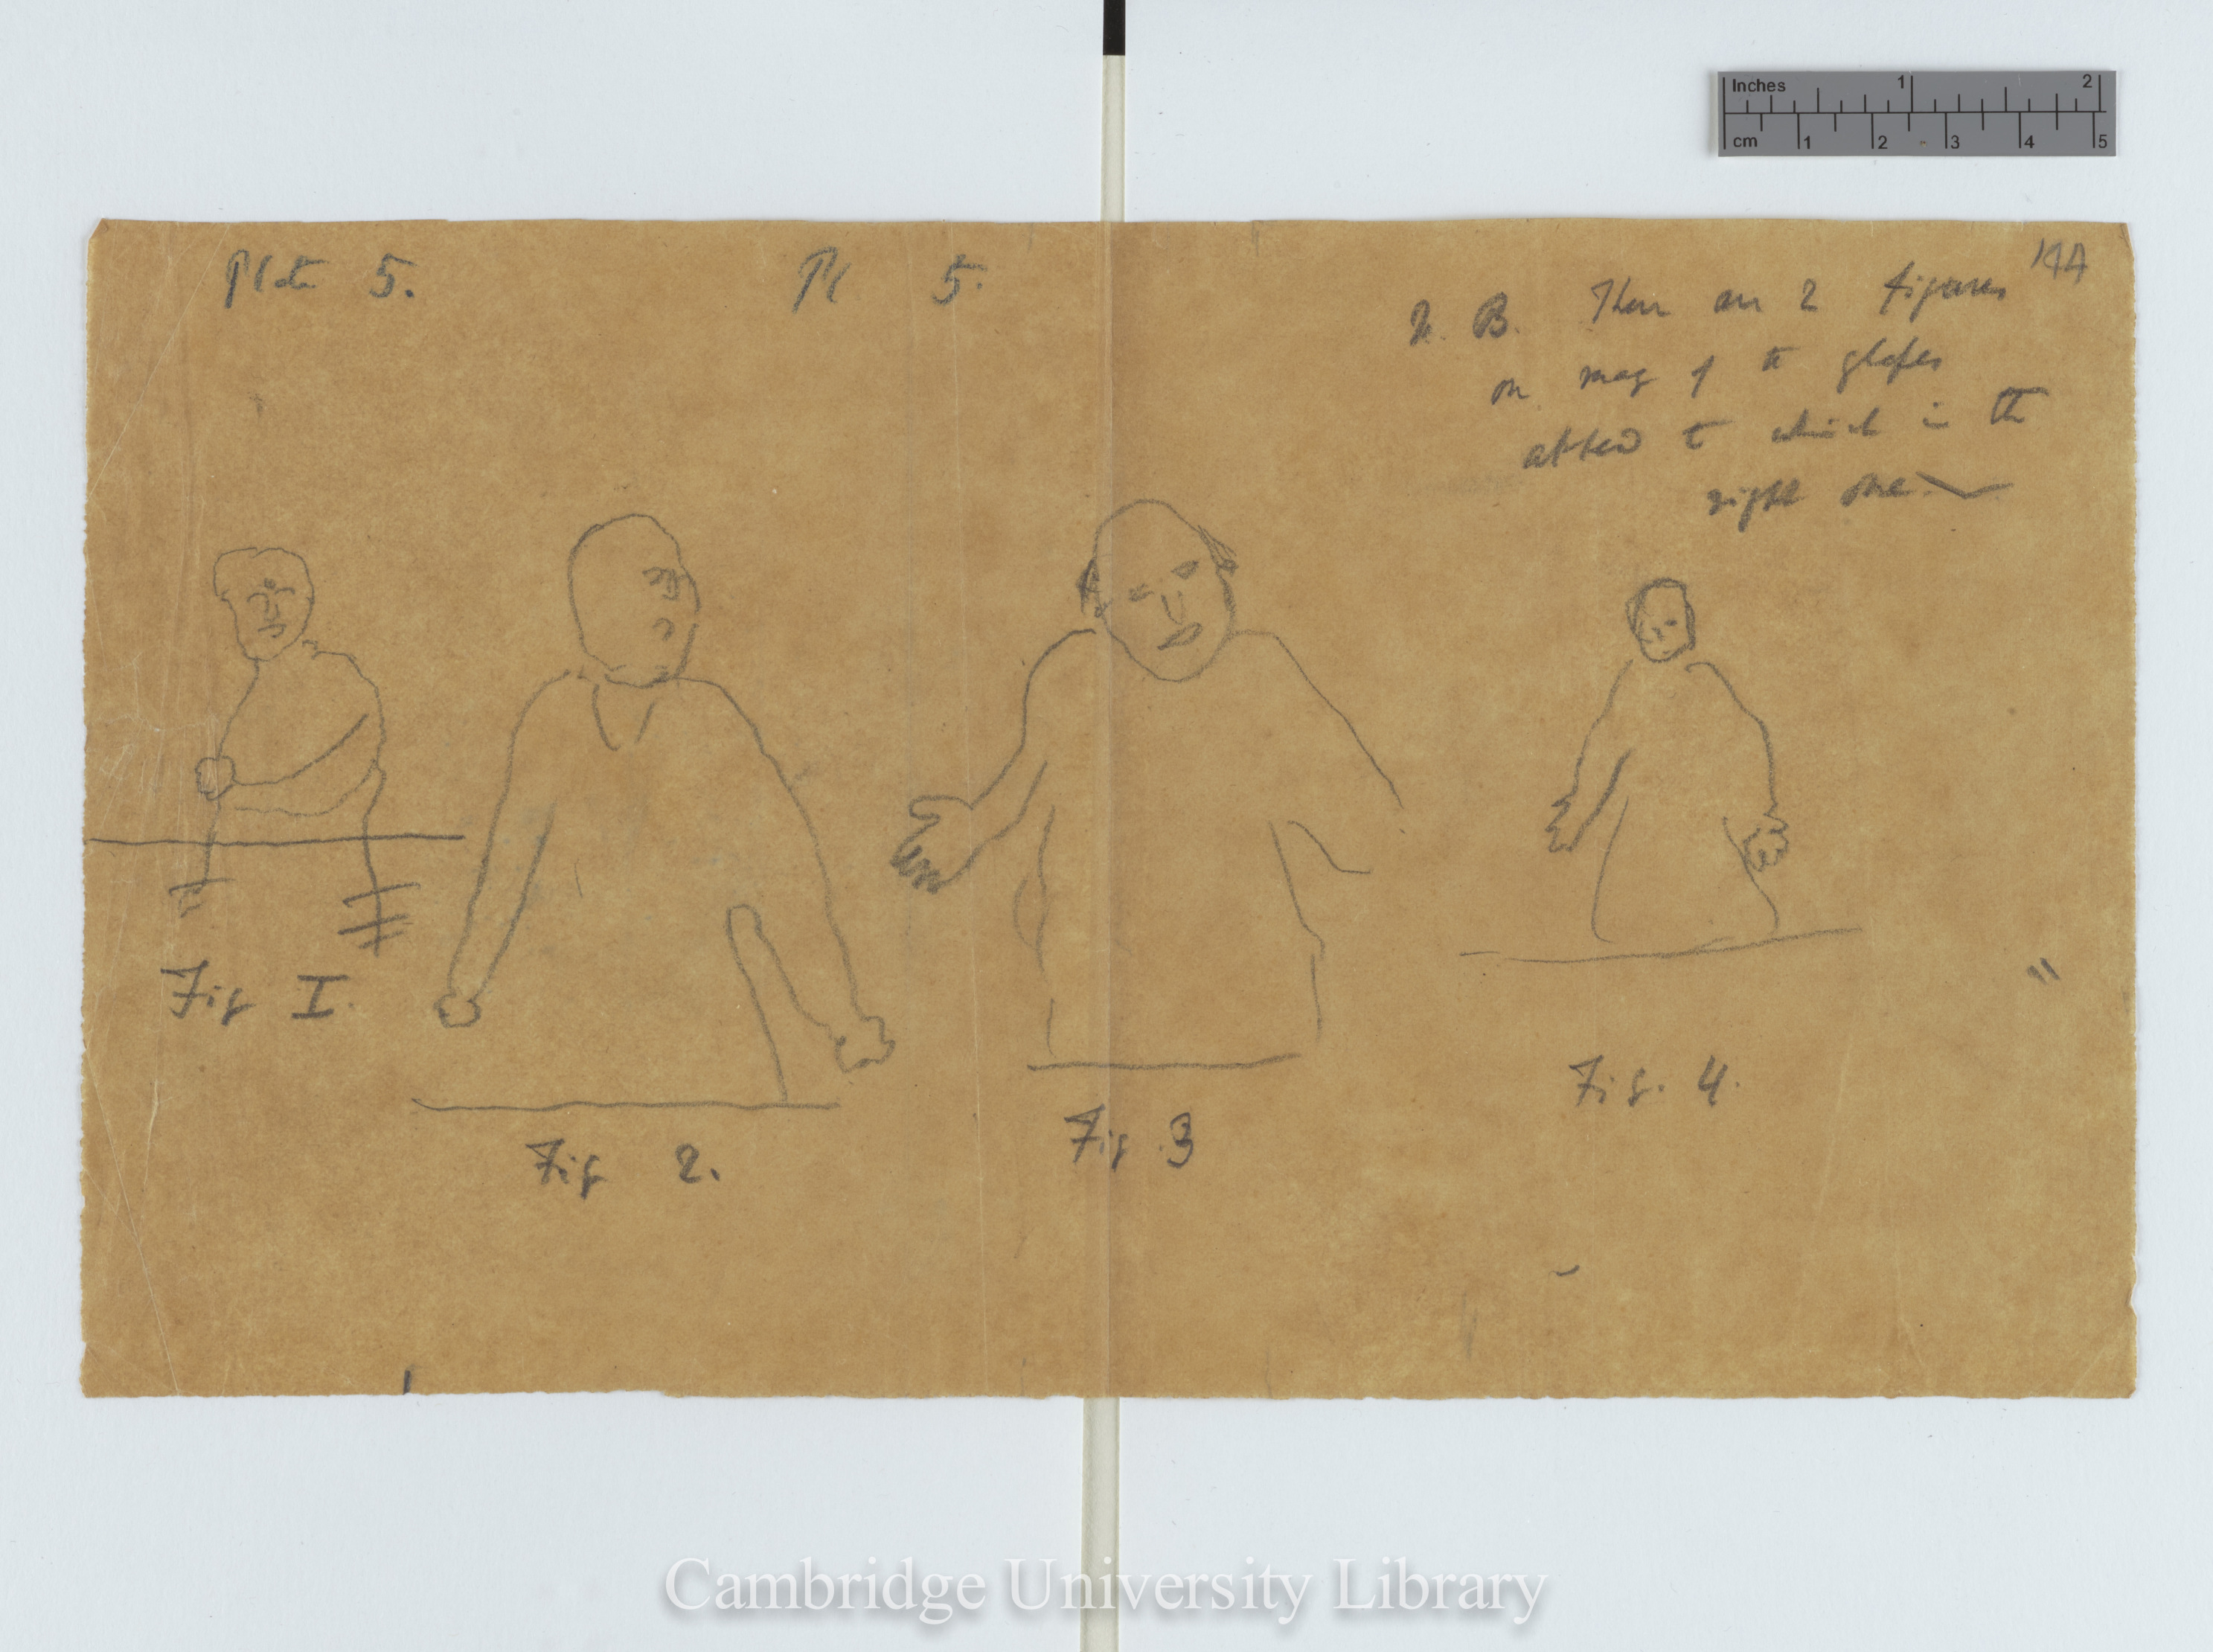 Inches 1 2
cm 1 2 3 4 5
Plate 5.
Pl 5.
144
N. B. There are 2 figures
on many of the glasses
attend to which is the
right one.
Fig I.
Fig 2.
Fig. 3
Fig. 4.
Cambridge University Library